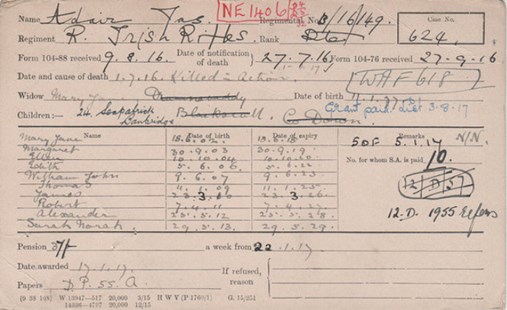 NE 1406
Name Adair Jas. Regimental No. B/16/149. Case No.
Regiment R. Irish Rifles Rank 624.
Form 104-88 received 9.8.16. Date of notification of death 27.7.16 Form 104-76 received 27-9.16
Date and cause of death 1.7.16. Killed in Action. WAF 618
Widow Mary Date of birth
Grant paid 3-8-17
Children:— 24, Seapatrick Banbridge Co Down.
Name Date of birth Date of expiry Remarks N/N.
Mary Jane 50F 5.1.17
Margaret 30.9.03 30.9.19 No. for whom S.A. is paid 10.
Ellen
Edith
William John 9.6.07 9.6.23
Thomas 11.1.09 11.1.25
James 23.3.10 23.3.26
Robert 7.4.11 7.4.27
Alexander 25.5.12 25.5.28 12.D. 1955 refers
Sarah Norah 29.5.13 29.5.29
Pension 37/- a week from 22.1.17
Date awarded 17.1.17. If refused, reason
Papers D.P. 55. A.
(9 38 138) W 13947—517 20,000 3/15 H W V (P 1760/1) G. 15/251
14836—4797 20,000 12/15